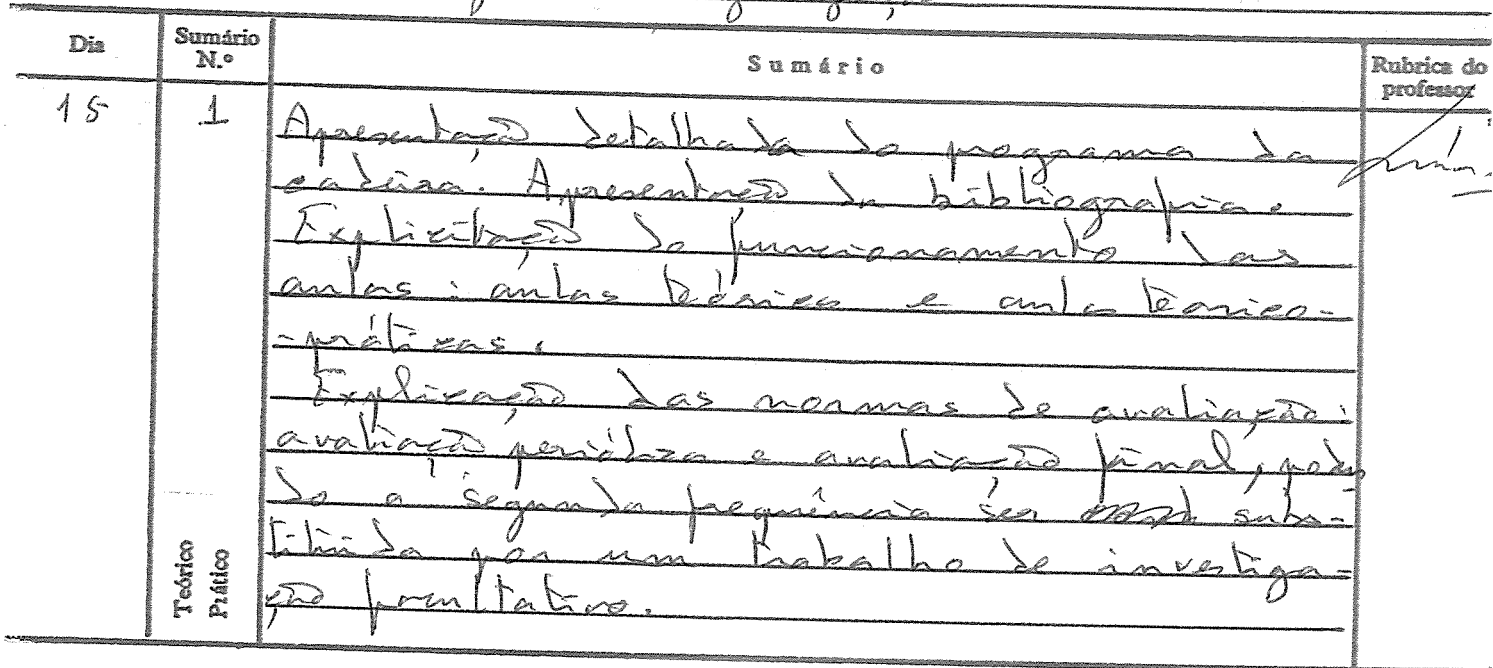 Dia Sumário N.º Sumário Rubrica do professor
15 1 Apresentação detalhada do programa da
cadeira. Apresentação da bibliografia.
Explicitação do funcionamento das
aulas: aulas teóricas e aulas teórico-
-práticas.
Explicação das normas de avaliação:
avaliação periódica e avaliação final, poden
do a segunda frequência ser subs-
tituída por um trabalho de investiga-
ção facultativo.
Teórico
Prático